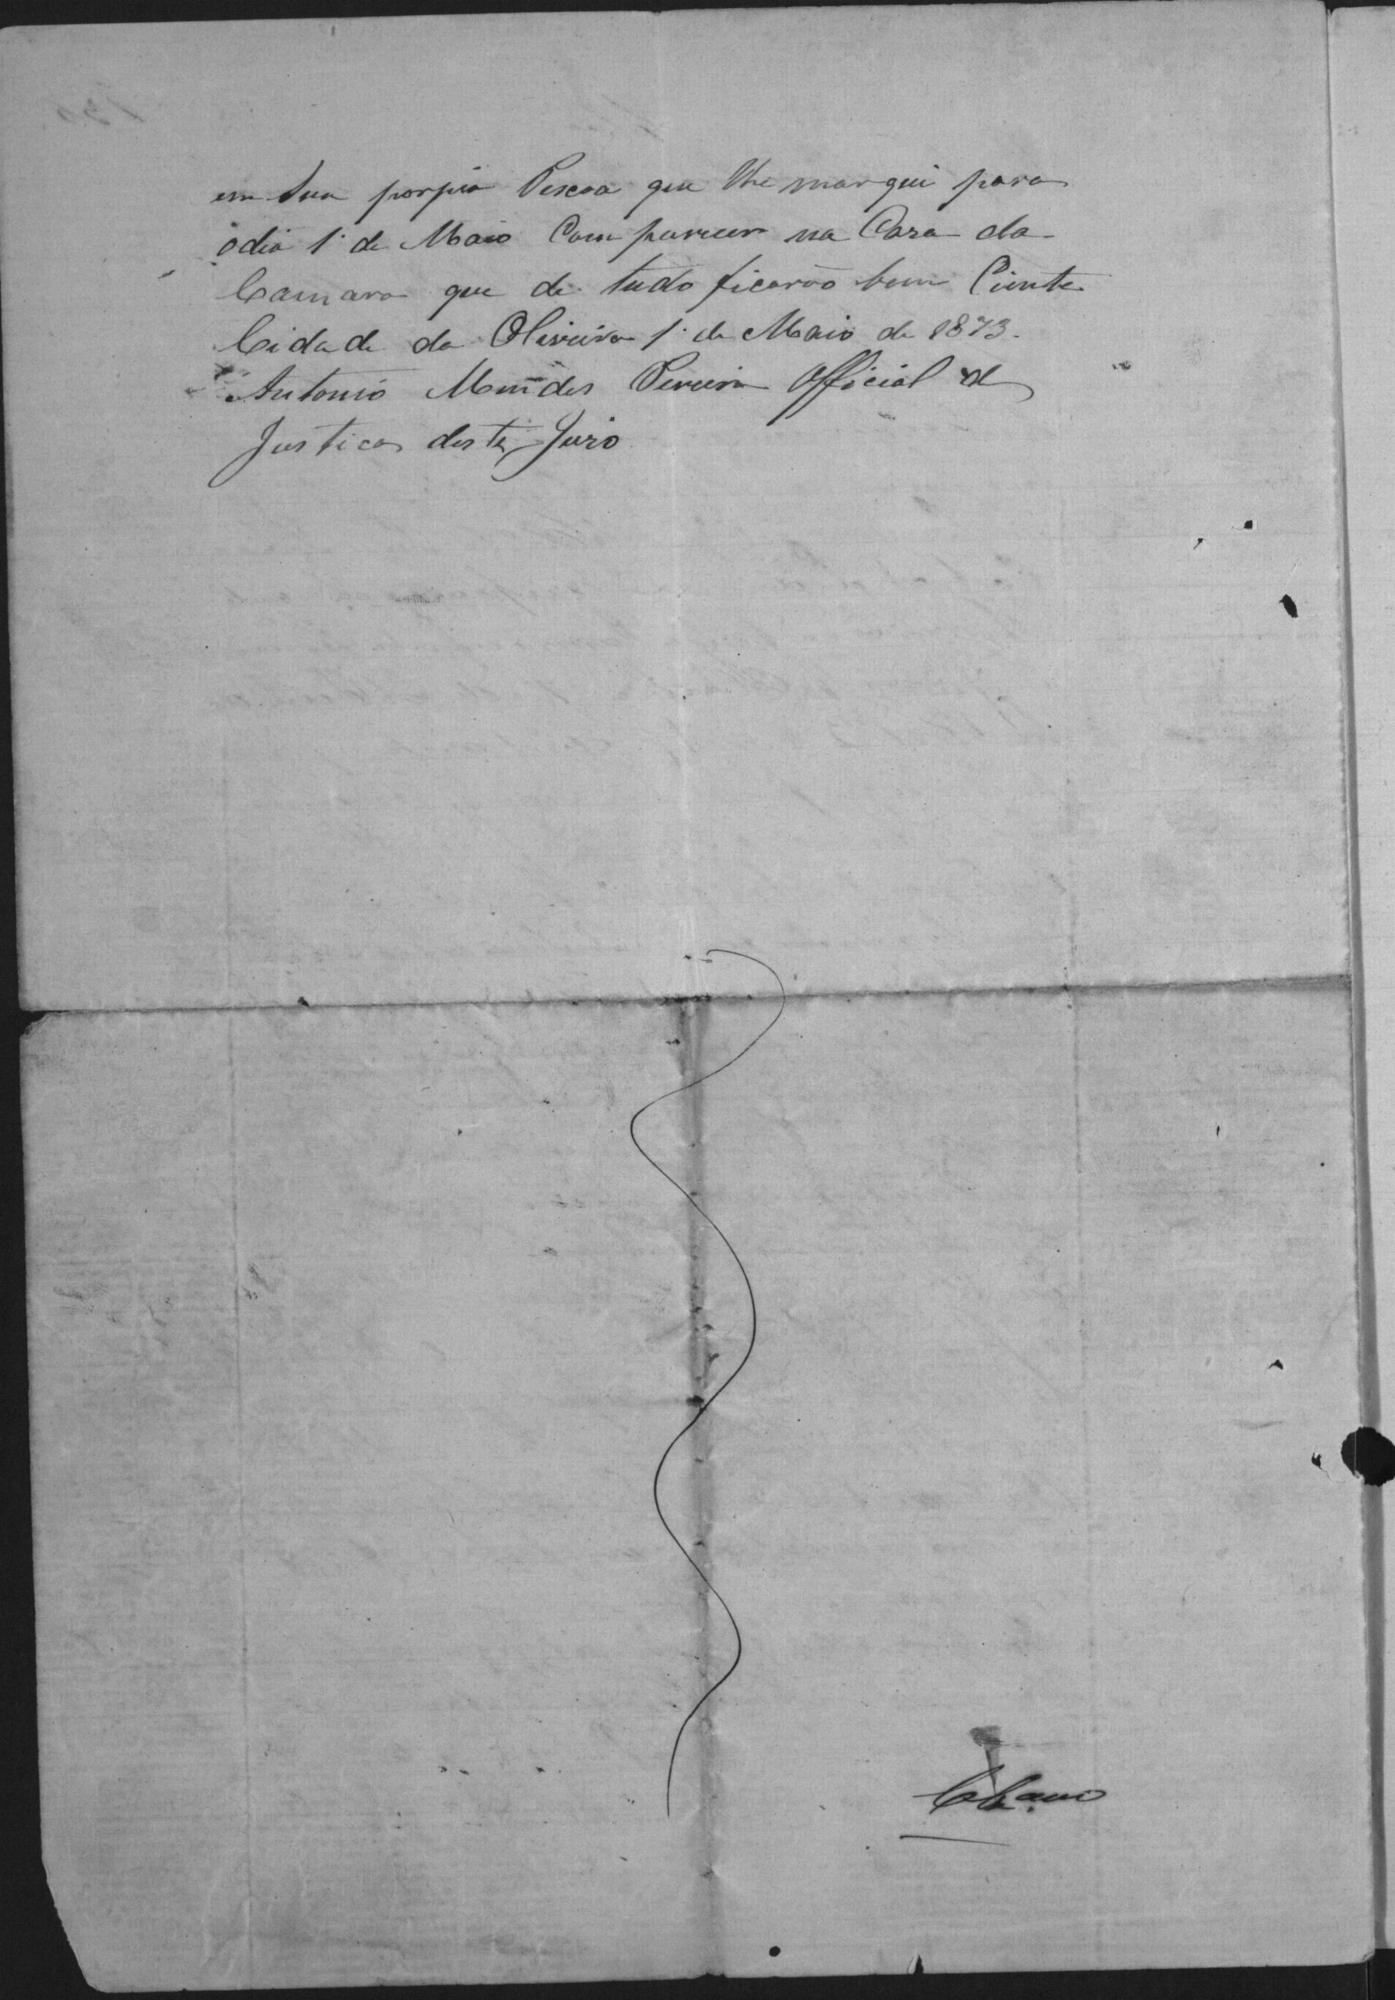 em Sua porpia Pescoa que lhe marquei para
odia 1º de Maio Comparecer na Caza da
Camara que de tudo ficarão bem Ciente
Cidade da Oliveira 1º de Maio de 1873.
Antonio Mendes Pereira Official de
Justica deste Juizo